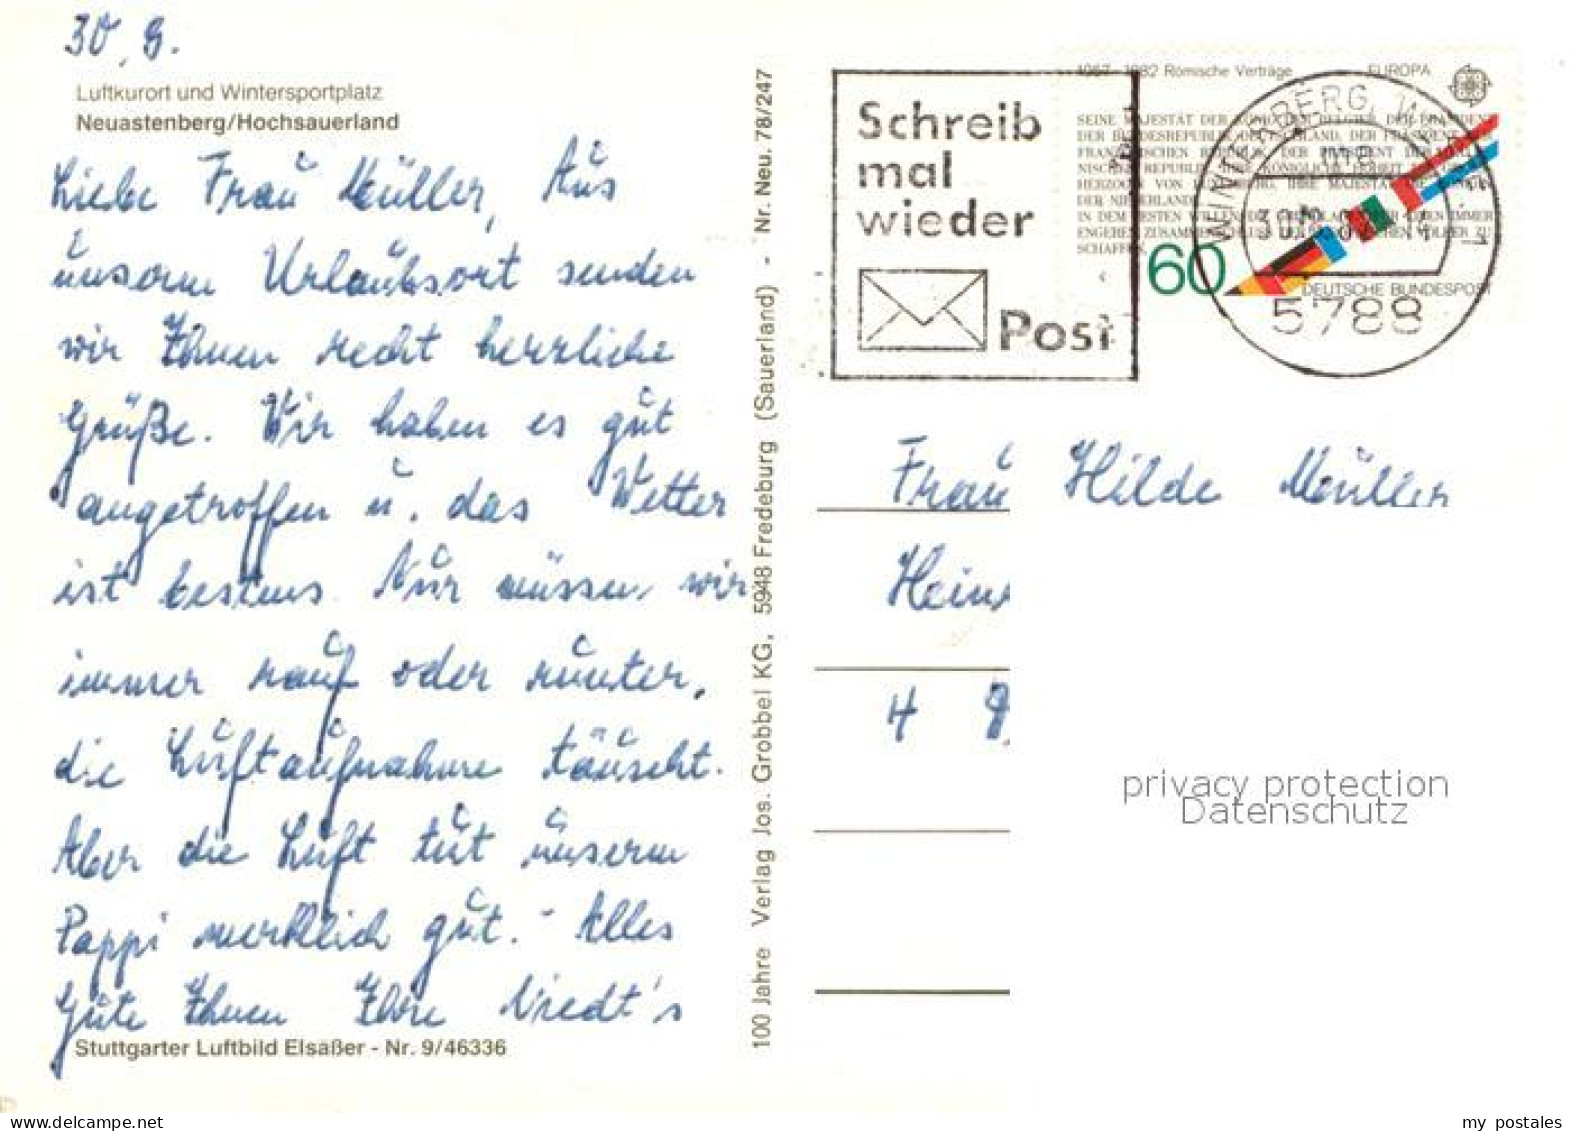 30. 9.
Luftkurort und Wintersportplatz
Neuastenberg/Hochsauerland
Liebe Frau Müller, Aus
unserm Urlaubsort senden
wir Ihnen recht herzliche
Grüße. Wir haben es gut
angetroffen u. das Wetter
ist bestens. Nur müssen wir
immer rauf oder runter.
die Luftaufnahme täuscht.
Aber die Luft tut unserm
Pappi merklich gut. - Alles
Gute Ihnen Ihre Niedt's
Stuttgarter Luftbild Elsaßer - Nr. 9/46336
100 Jahre Verlag Jos. Grobbel KG, 5948 Fredeburg (Sauerland) - Nr. Neu. 78/247
Schreib
mal
wieder
Post
1957 1982 Römische Verträge EUROPA
SEINE MAJESTÄT DER KÖNIG DER BELGIER, DER PRÄSIDENT
DER BUNDESREPUBLIK DEUTSCHLAND, DER PRÄSIDENT DER
FRANZÖSISCHEN REPUBLIK, DER PRÄSIDENT DER ITALIE-
NISCHEN REPUBLIK, IHRE KÖNIGLICHE HOHEIT DIE GROSS-
HERZOGIN VON LUXEMBURG, IHRE MAJESTÄT DIE KÖNIGIN
DER NIEDERLANDE
IN DEM FESTEN WILLEN, DIE GRUNDLAGEN FÜR EINEN IMMER
ENGEREN ZUSAMMENSCHLUSS DER EUROPÄISCHEN VÖLKER ZU
SCHAFFEN,
60
DEUTSCHE BUNDESPOST
WINTERBERG, WESTF
mb
5788
Frau Hilde Müller
4
privacy protection
Datenschutz
my postales